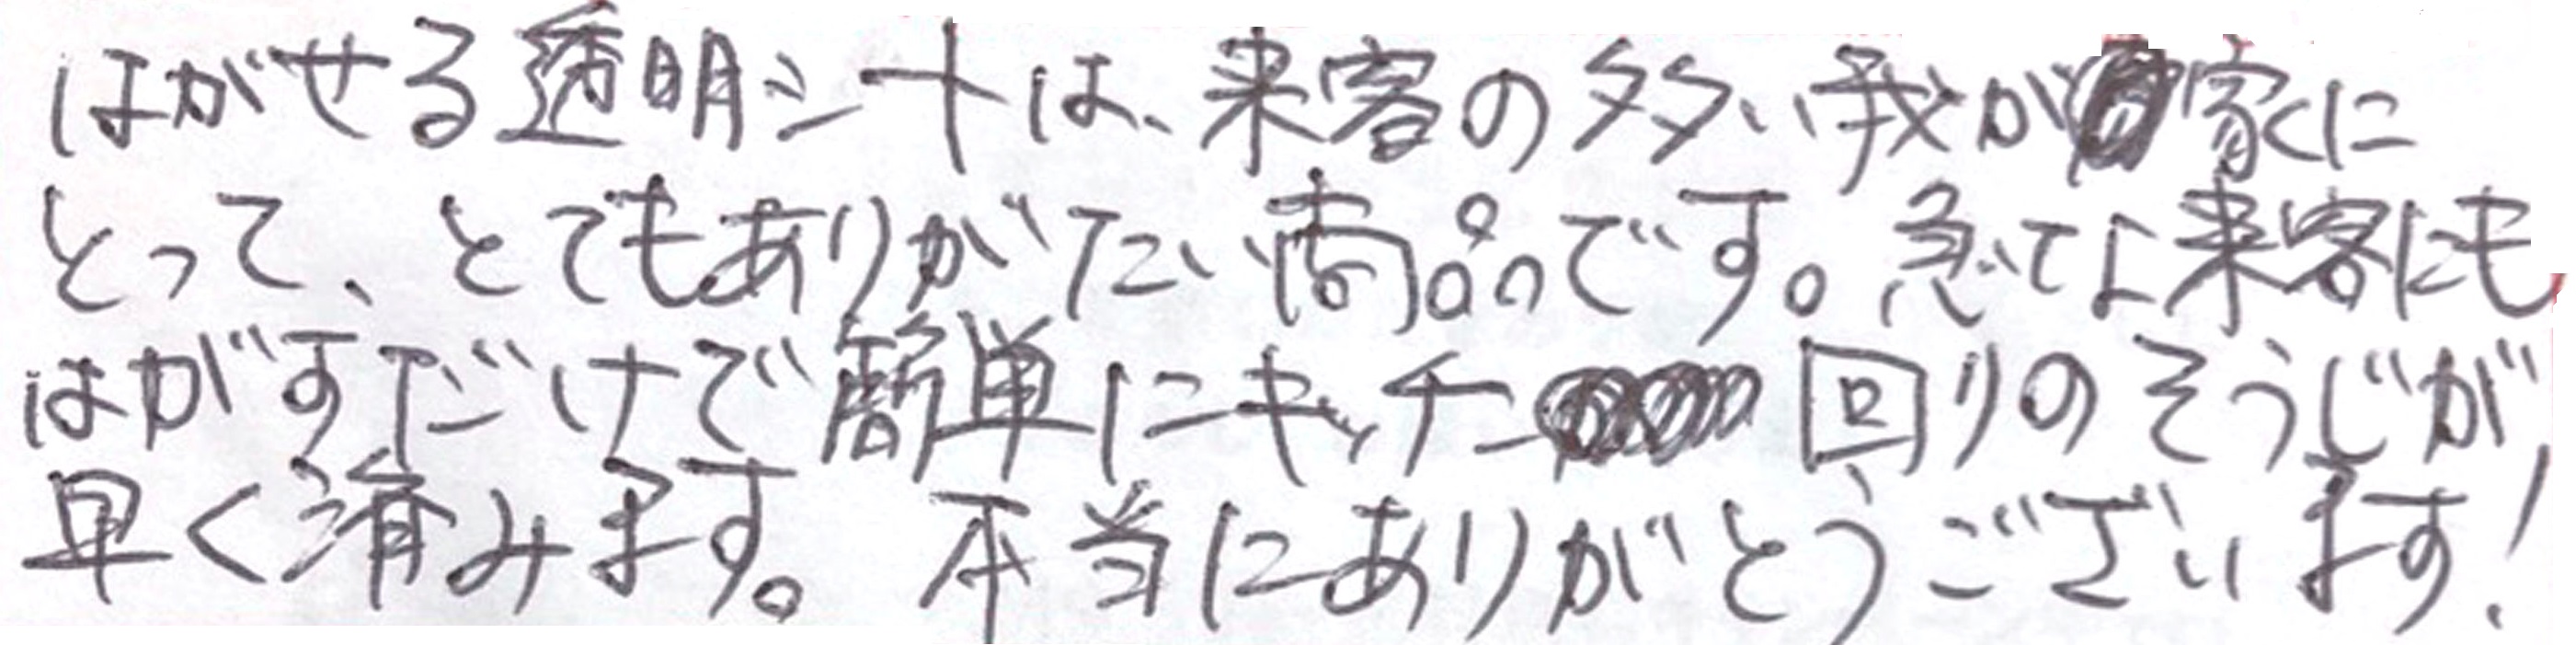 はがせる透明シートは、来客の多い我が家に
とって、とてもありがたい商品です。急な来客にも
はがすだけで簡単にキッチン回りのそうじが
早く済みます。本当にありがとうございます!